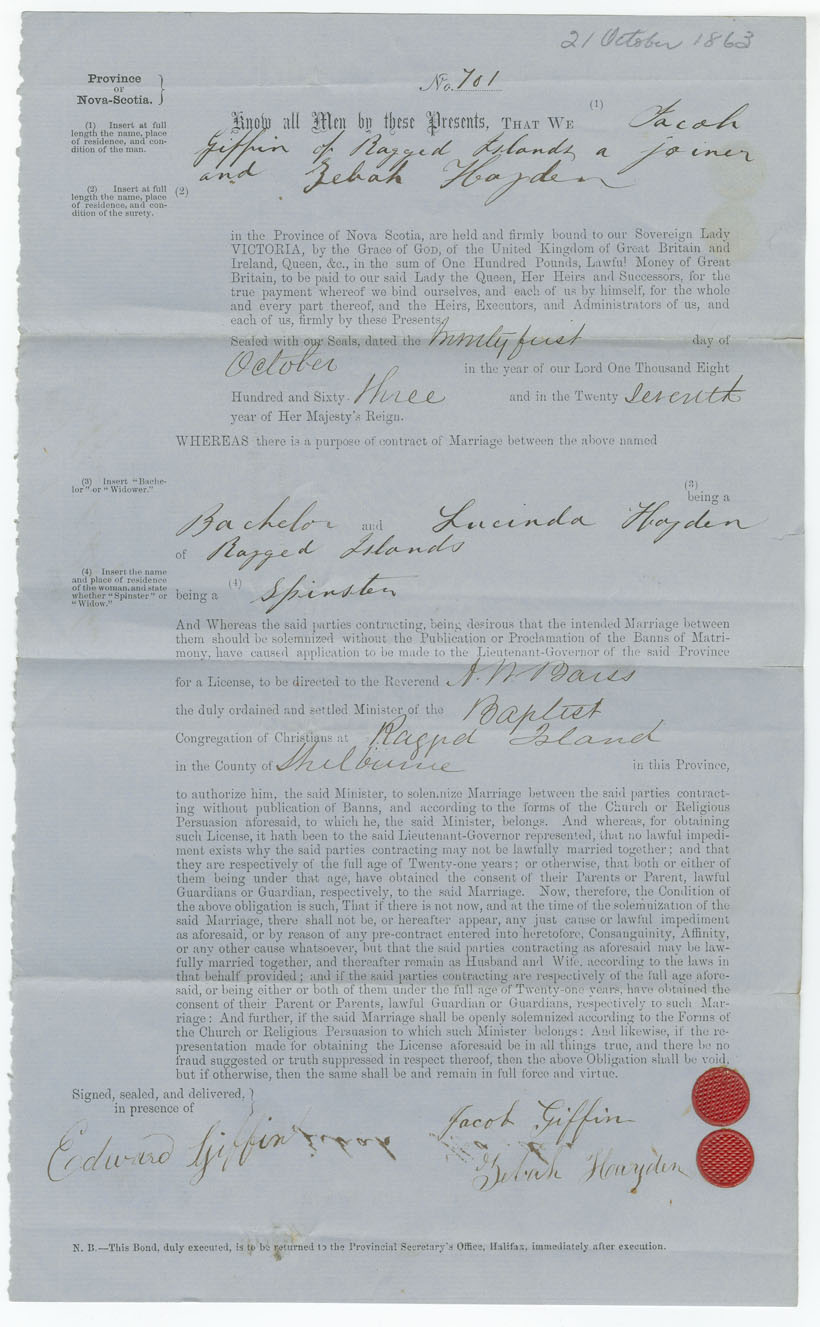 21 October 1863
Province
OF
Nova-Scotia.
No. 701
(1) Insert at full length the name, place of residence, and condition of the man.
Know all Men by these Presents, THAT WE (1) Jacob
Giffin of Ragged Islands a joiner
and Zebah Hayden
(2) Insert at full length the name, place of residence, and condition of the surety.
(2)
in the Province of Nova Scotia, are held and firmly bound to our Sovereign Lady
VICTORIA, by the Grace of GOD, of the United Kingdom of Great Britain and
Ireland, Queen, &c., in the sum of One Hundred Pounds, Lawful Money of Great
Britain, to be paid to our said Lady the Queen, Her Heirs and Successors, for the
true payment whereof we bind ourselves, and each of us by himself, for the whole
and every part thereof, and the Heirs, Executors, and Administrators of us, and
each of us, firmly by these Presents.
Sealed with our Seals, dated the twenty first day of
October in the year of our Lord One Thousand Eight
Hundred and Sixty- three and in the Twenty Seventh
year of Her Majesty's Reign.
WHEREAS there is a purpose of contract of Marriage between the above named
(3) Insert "Bachelor" or "Widower."
(3)
being a
Bachelor and Lucinda Hayden
of Ragged Islands
(4) Insert the name and place of residence of the woman, and state whether "Spinster" or "Widow."
being a (4) Spinster
And Whereas the said parties contracting, being desirous that the intended Marriage between
them should be solemnized without the Publication or Proclamation of the Banns of Matri-
mony, have caused application to be made to the Lieutenant-Governor of the said Province
for a License, to be directed to the Reverend A. W. Barss
the duly ordained and settled Minister of the Baptist
Congregation of Christians at Ragged Island
in the County of Shelburne in this Province,
to authorize him, the said Minister, to solemnize Marriage between the said parties contract-
ing without publication of Banns, and according to the forms of the Church or Religious
Persuasion aforesaid, to which he, the said Minister, belongs. And whereas, for obtaining
such License, it hath been to the said Lieutenant-Governor represented, that no lawful impedi-
ment exists why the said parties contracting may not be lawfully married together; and that
they are respectively of the full age of Twenty-one years; or otherwise, that both or either of
them being under that age, have obtained the consent of their Parents or Parent, lawful
Guardians or Guardian, respectively, to the said Marriage. Now, therefore, the Condition of
the above obligation is such, That if there is not now, and at the time of the solemnization of the
said Marriage, there shall not be, or hereafter appear, any just cause or lawful impediment
as aforesaid, or by reason of any pre-contract entered into heretofore, Consanguinity, Affinity,
or any other cause whatsoever, but that the said parties contracting as aforesaid may be law-
fully married together, and thereafter remain as Husband and Wife, according to the laws in
that behalf provided; and if the said parties contracting are respectively of the full age afore-
said, or being either or both of them under the full age of Twenty-one years, have obtained the
consent of their Parent or Parents, lawful Guardian or Guardians, respectively to such Mar-
riage: And further, if the said Marriage shall be openly solemnized according to the Forms of
the Church or Religious Persuasion to which such Minister belongs: And likewise, if the re-
presentation made for obtaining the License aforesaid be in all things true, and there be no
fraud suggested or truth suppressed in respect thereof, then the above Obligation shall be void,
but if otherwise, then the same shall be and remain in full force and virtue.
Signed, sealed, and delivered,
in presence of
Edward Giffin
Jacob Giffin
Zebah Hayden
N. B.—This Bond, duly executed, is to be returned to the Provincial Secretary's Office, Halifax, immediately after execution.